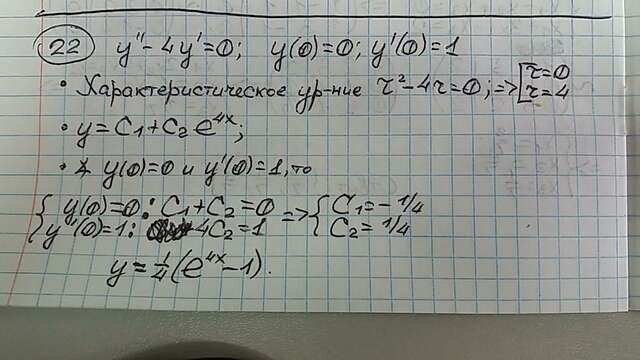 22 y'' - 4y' = 0; y(0)=0; y'(0)=1
• Характеристическое ур-ние r² - 4r = 0; => [r=0
r=4
• y = C₁ + C₂ e^{4x};
• т.к. y(0)=0 и y'(0)=1, то
{ y(0)=0: C₁ + C₂ = 0 => { C₁ = - 1/4
y'(0)=1: 4C₂ = 1 C₂ = 1/4
y = 1/4 (e^{4x} - 1).